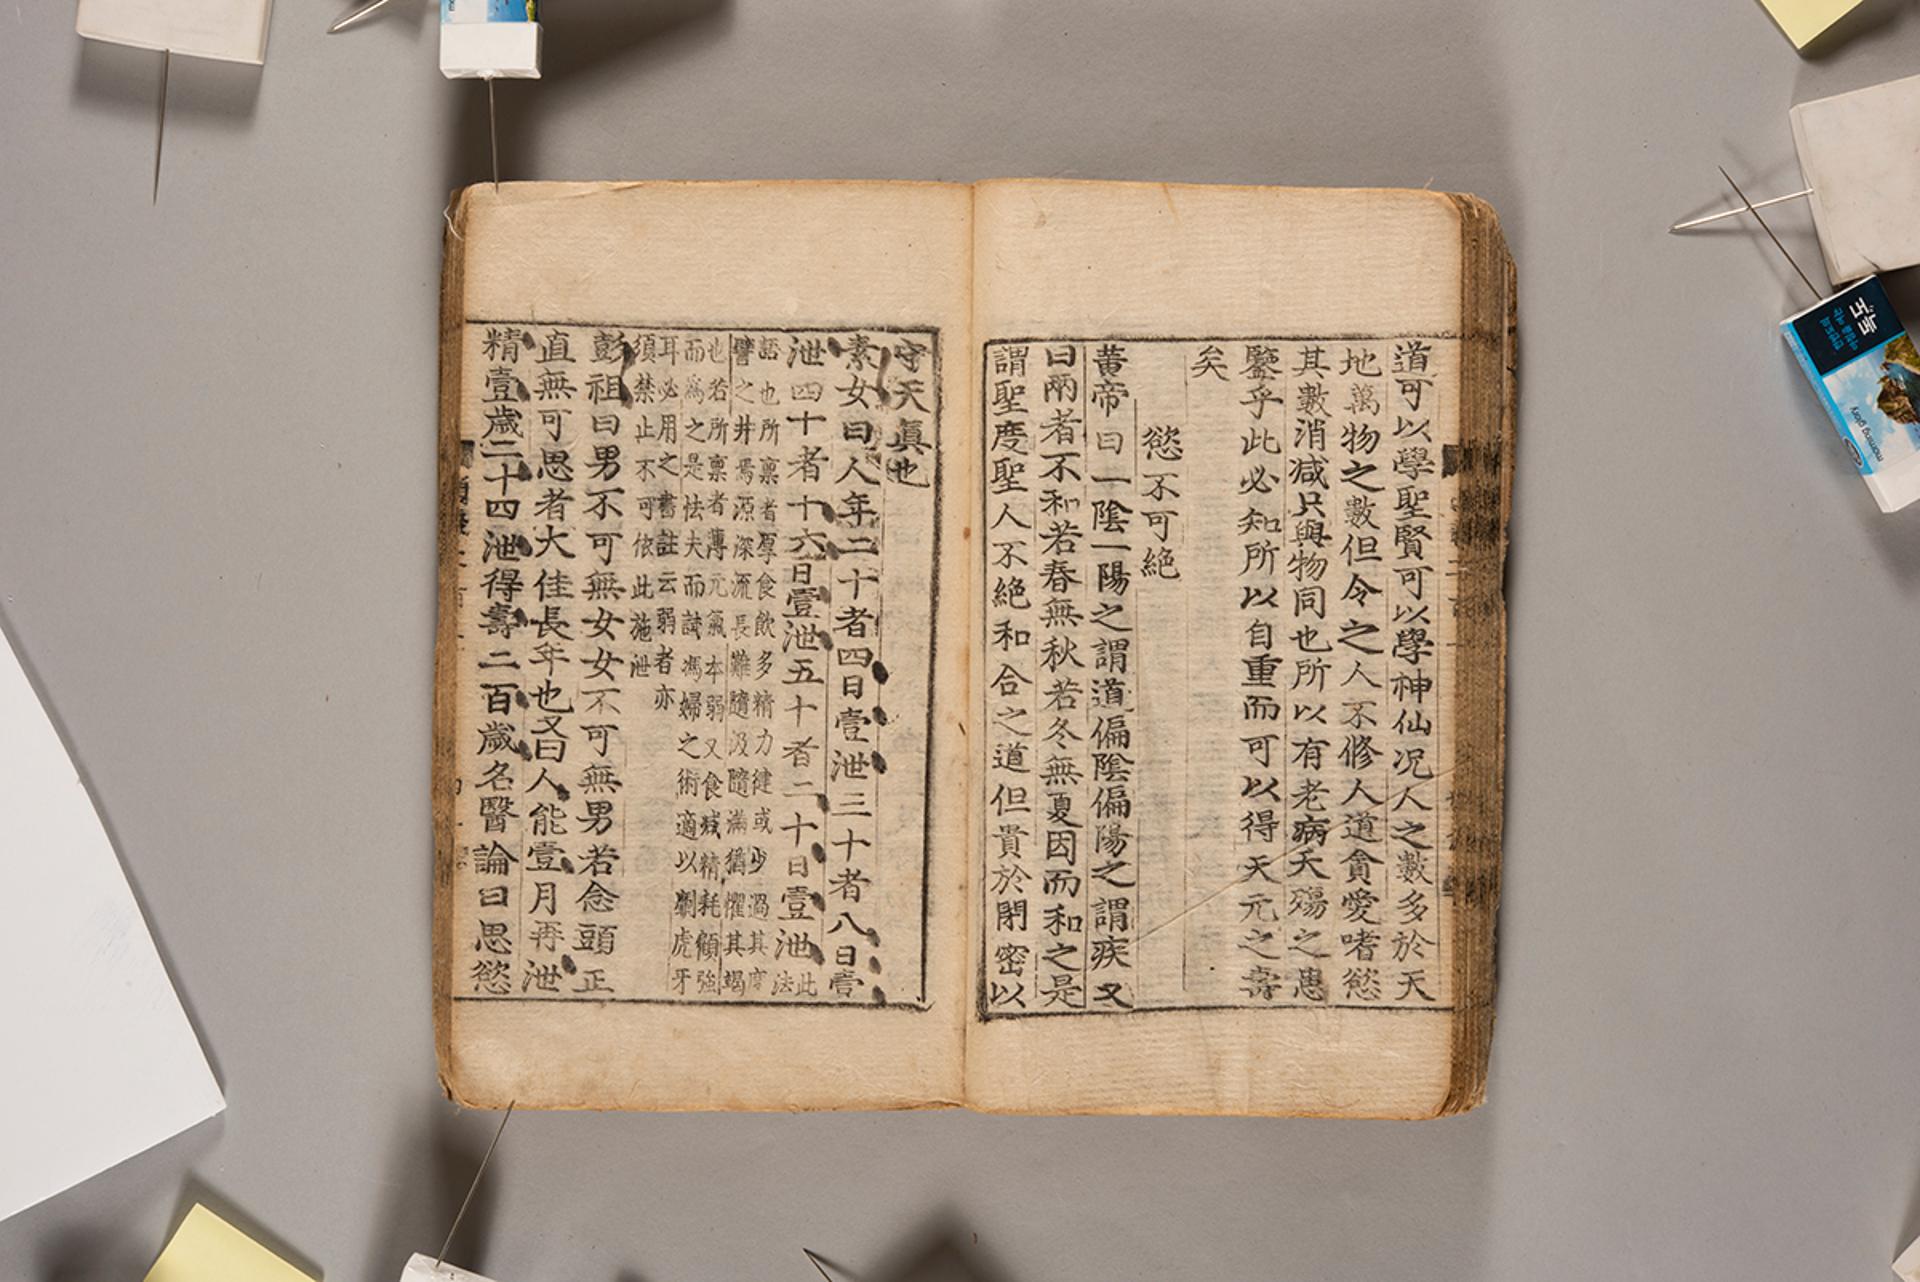 道可以學聖賢可以學神仙况人之數多於天
地萬物之數但令之人不修人道貪愛嗜慾
其數消减只與物同也所以有老病夭殤之患
鑒乎此必知所以自重而可以得天元之壽
矣
慾不可絕
黄帝曰一隂一陽之謂道偏隂偏陽之謂疾又
曰兩者不和若春無秋若冬無夏因而和之是
謂聖度聖人不絕和合之道但貴於閉密以
守天眞也
素女曰人年二十者四日壹泄三十者八日壹
泄四十者十六日壹泄五十者二十日壹泄 此法
語也所禀者厚食飲多精力健或少過其度
譬之井焉源深流長難隨汲隨滿猶懼其竭
也若所禀者薄元氣本弱又食减精耗顧強
而爲之是怯夫而試馮婦之術適以劘虎牙
耳必用之書註云弱者亦
須禁止不可依此施泄
彭祖曰男不可無女女不可無男若念頭正
直無可思者大佳長年也又曰人能壹月再泄
精壹歲二十四泄得壽二百歲名醫論曰思慾
녹동
morning glory